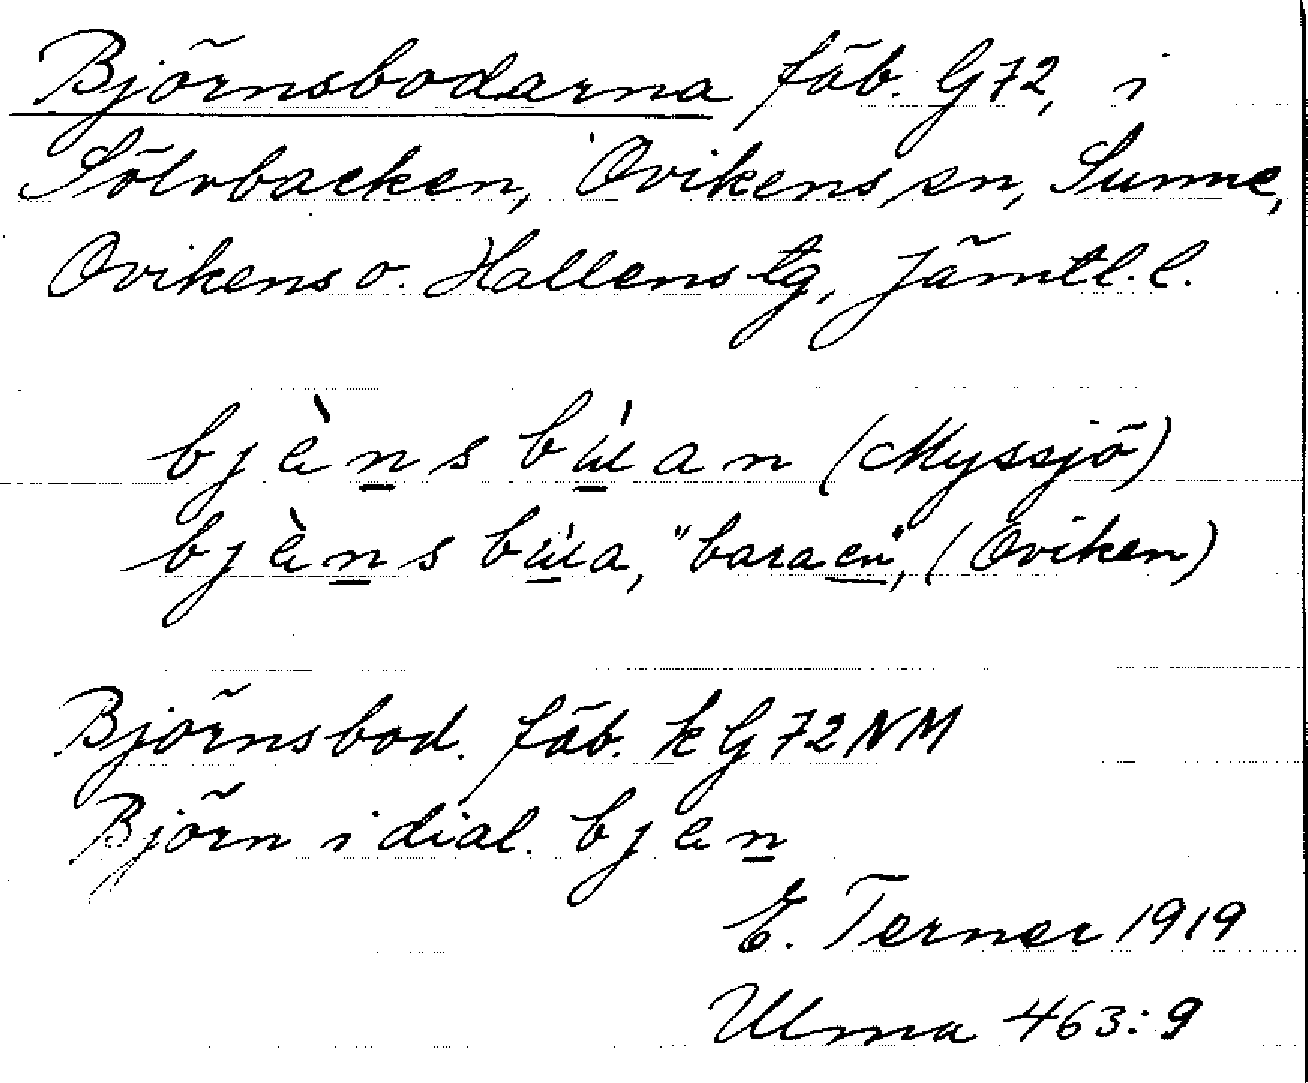 Björnsbodarna fäb. G72, i
Sölvbacken, Ovikens sn, Sunne,
Ovikens o. Hallens tg, Jämtl. l.
bjæ̀n̲sbu̲̇̀an (Myssjö)
bjæ̀n̲sbu̲̇̀a, "bara en", (Oviken)
Björnsbod. fäb. k G 72 NM
Björn i dial. bjæn̲
E. Terner 1919
Ulma 463:9